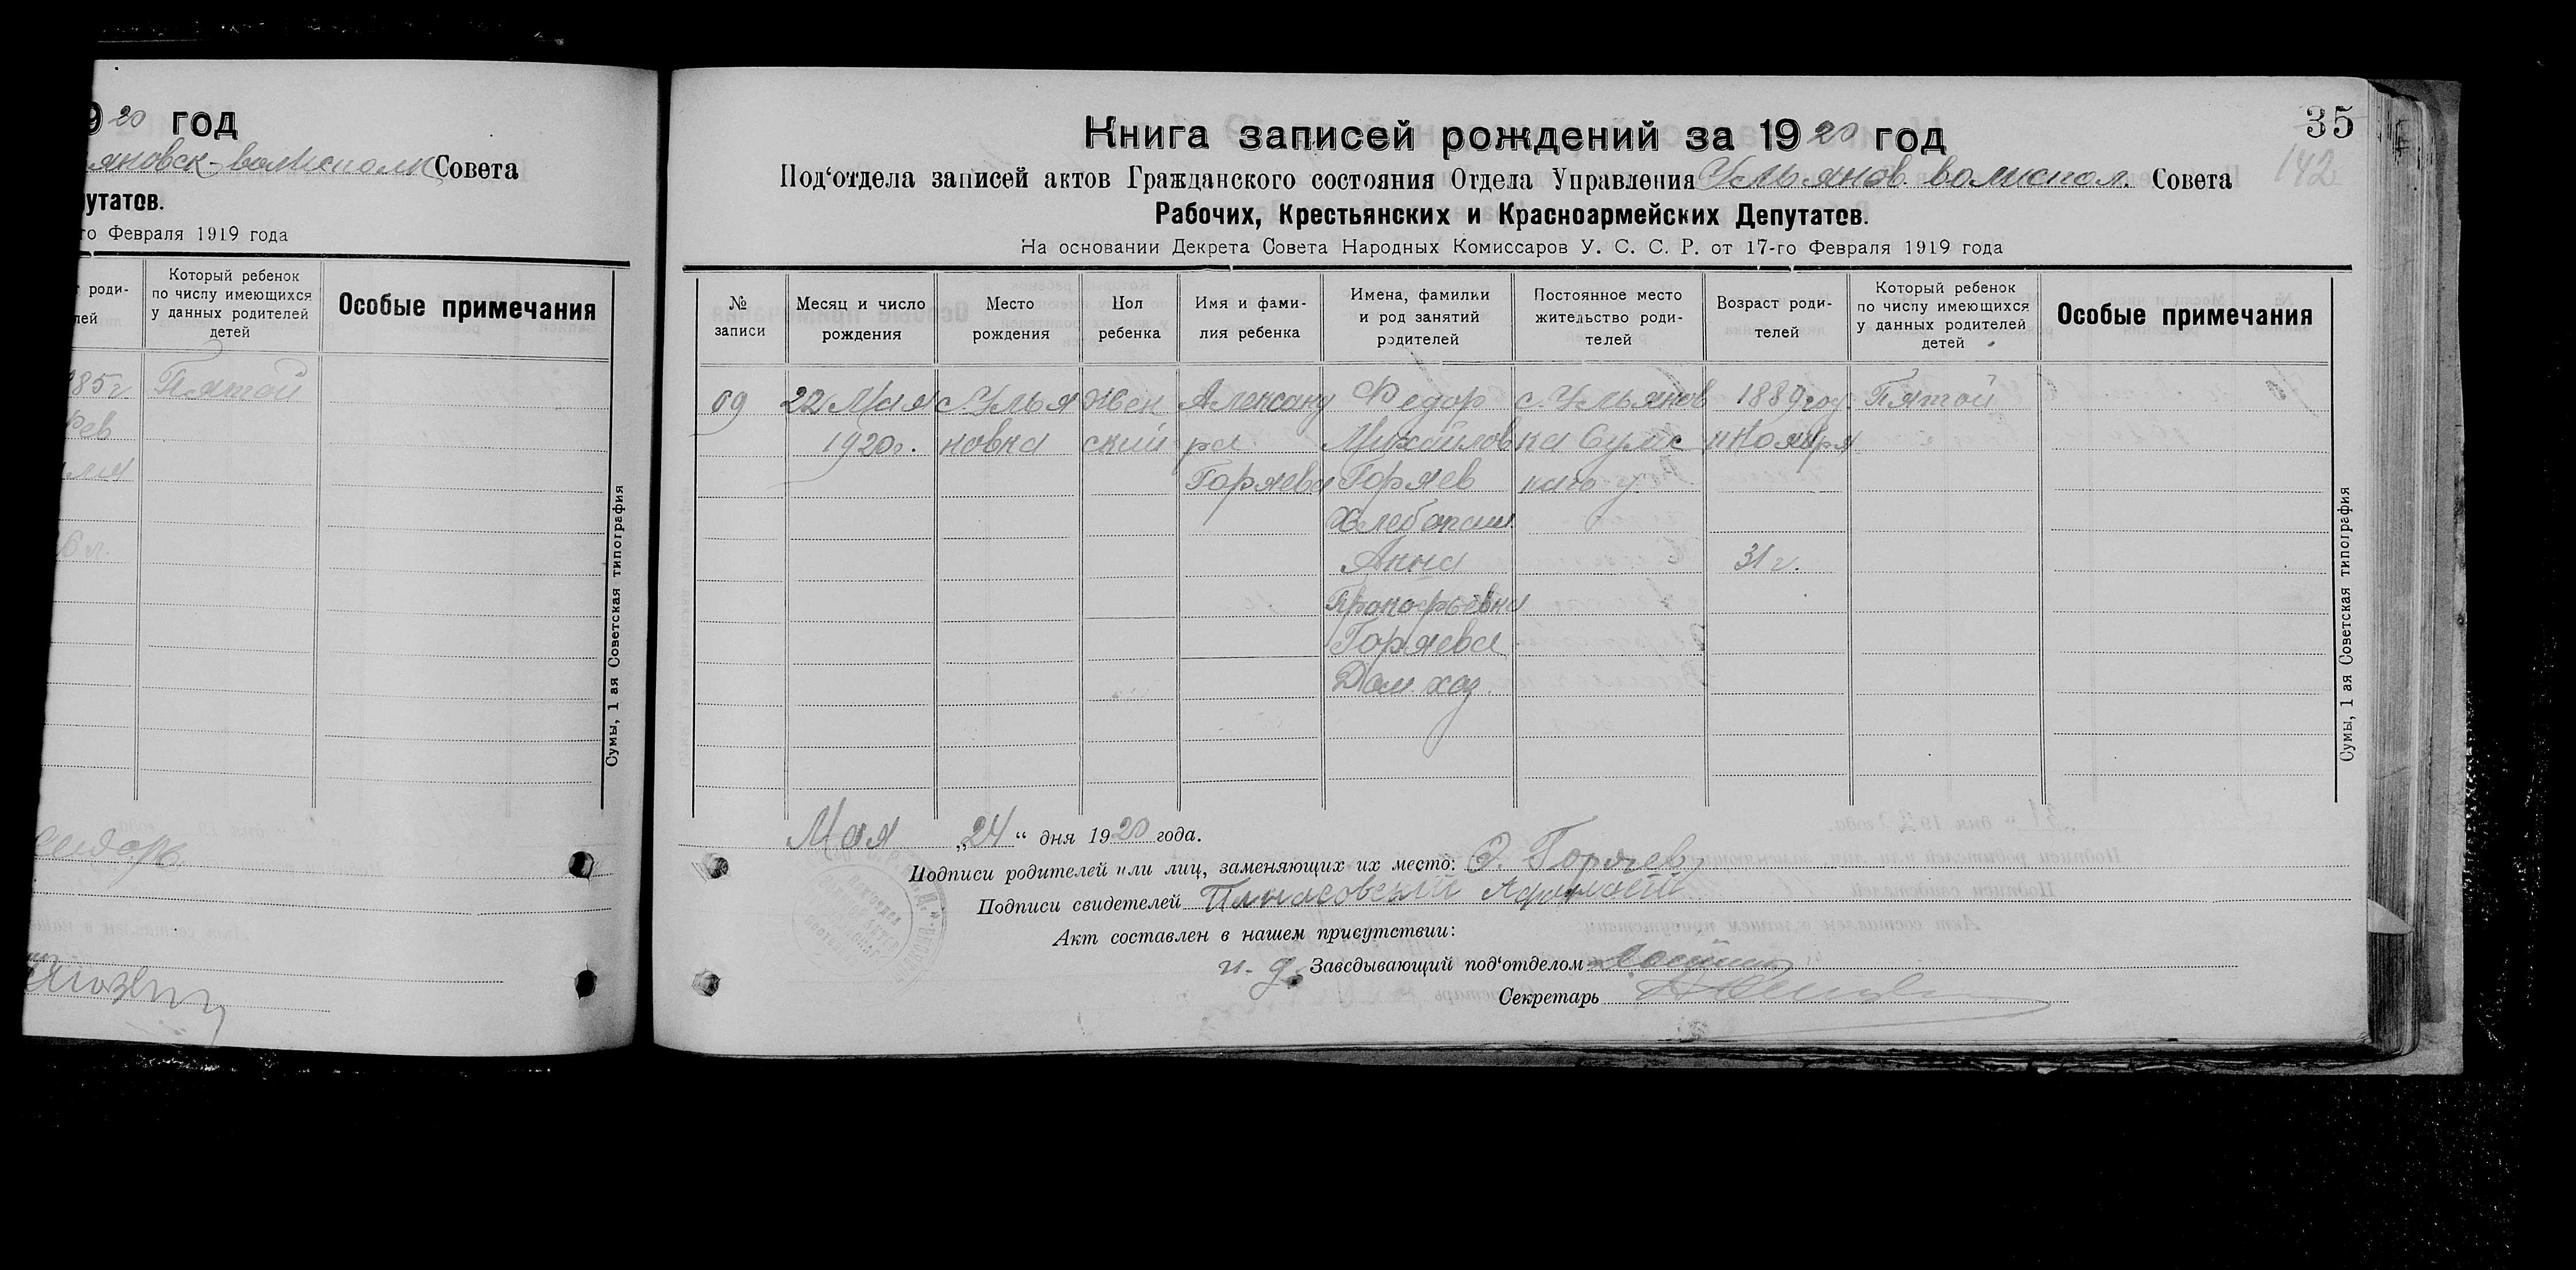 20 год
яновск-волисполк Совета
утатов.
го Февраля 1919 года
роди-
лей
Который ребенок
по числу имеющихся
у данных родителей
детей
Особые примечания
85 г.
Пятой
Фев
6 л.
Сумы, 1 ая Советская типография
35
142
Книга записей рождений за 1920 год
Под'отдела записей актов Гражданского состояния Отдела Управления Ульянов. волиспол. Совета
Рабочих, Крестьянских и Красноармейских Депутатов.
На основании Декрета Совета Народных Комиссаров У. С. С. Р. от 17-го Февраля 1919 года
№
записи
Месяц и число
рождения
Место
рождения
Пол
ребенка
Имя и фами-
лия ребенка
Имена, фамилии
и род занятий
родителей
Постоянное место
жительство роди-
телей
Возраст роди-
телей
Который ребенок
по числу имеющихся
у данных родителей
детей
Особые примечания
69 22 Мая с. Улья Жен Александ Федор с. Ульянов 1889 год. Пятой
1920 г. новка ский ра Михайлов ка Сумс Ноября
Горяева Горяев каго у.
Хлебопаш.
Анна 31 г.
Прокофьевна
Горяева
Дом. хоз.
Сумы, 1 ая Советская типография
Мая „24“ дня 1920 года.
Подписи родителей или лиц, заменяющих их место: Ф. Горячев
Подписи свидетелей
Акт составлен в нашем присутствии:
и. д. Заведывающий под'отделом
Секретарь